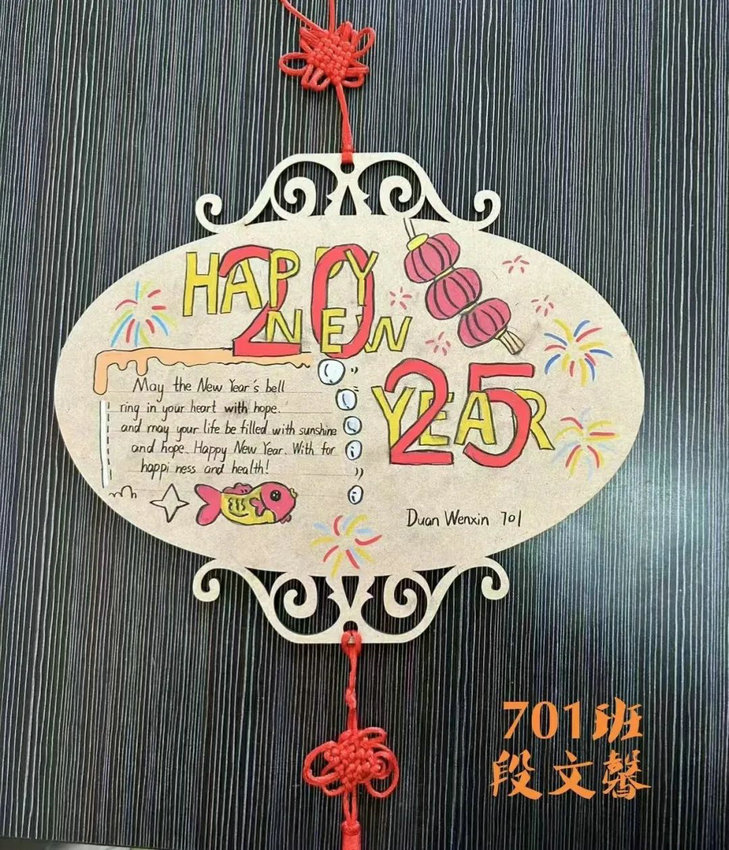 HAPPY 20
NEW
YEAR 25
May the New Year's bell
ring in your heart with hope.
and may your life be filled with sunshine
and hope. Happy New Year. With for
happi ness and health!
Duan Wenxin 701
701班
段文馨